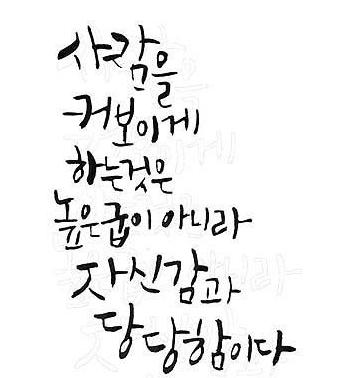 사람을
커보이게
하는것은
높은굽이 아니라
자신감과
당당함이다